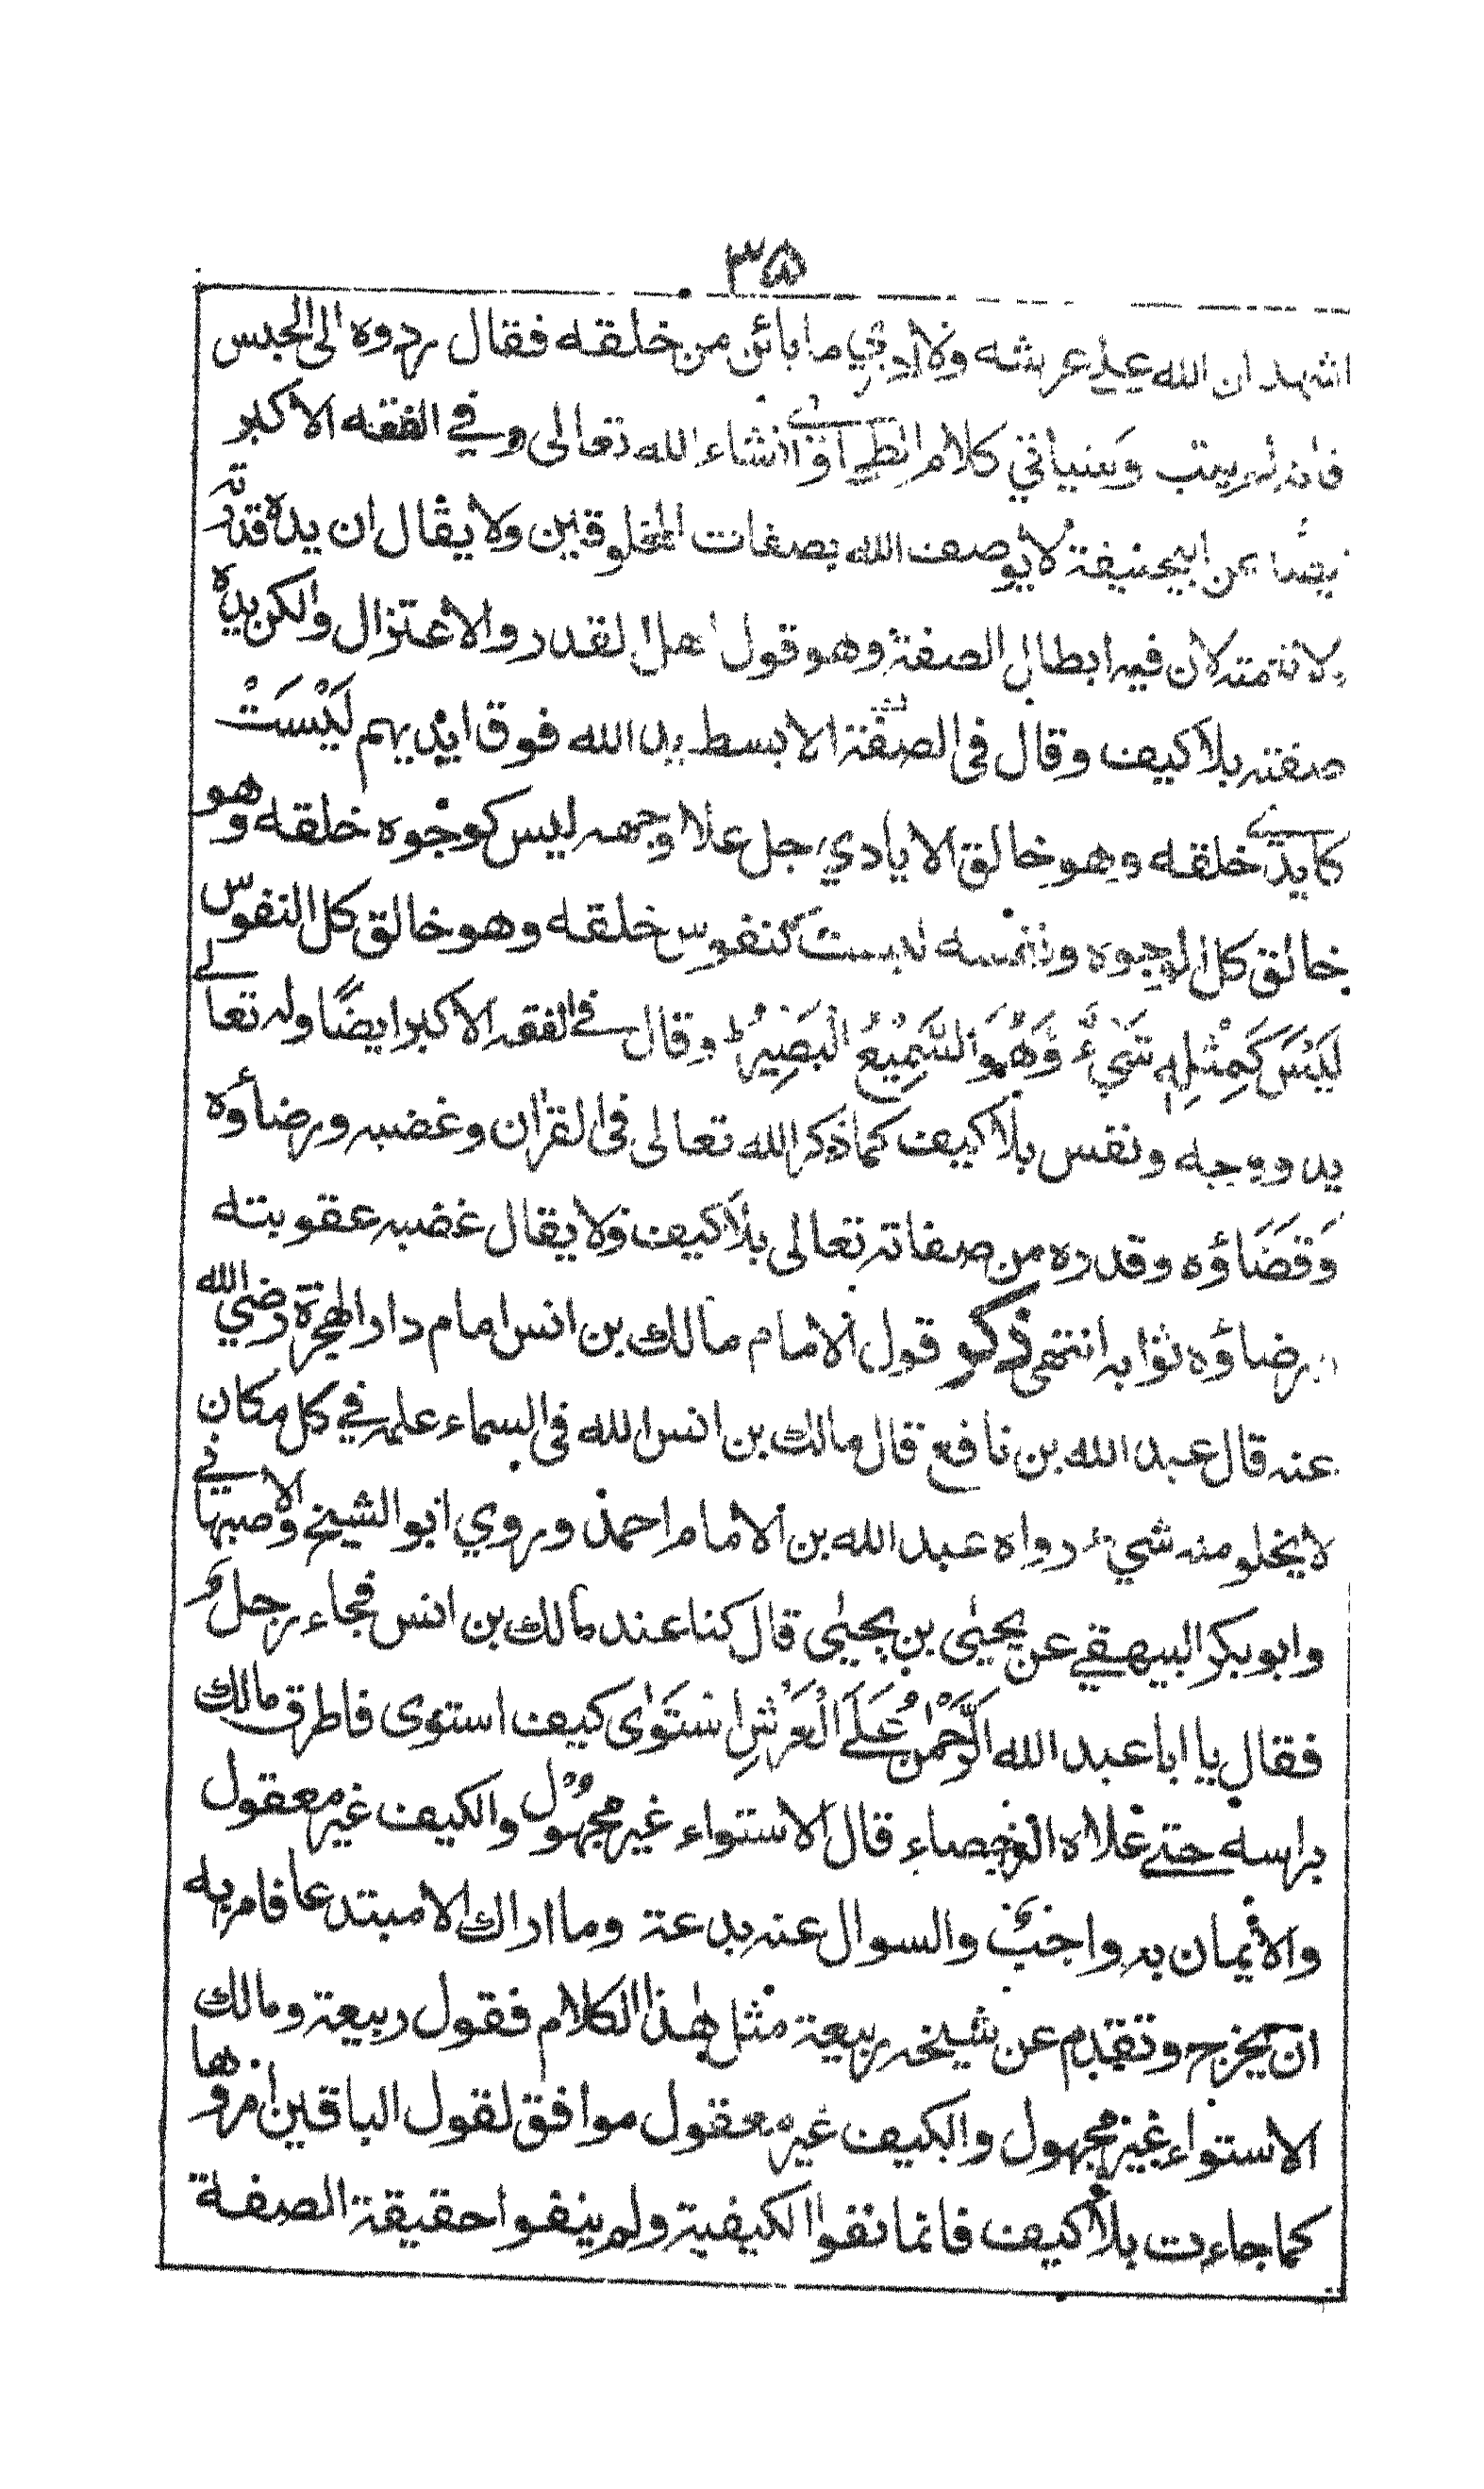 ٣٥
اشهد ان الله على عرشه ولا ادري ما بائن من خلقه فقال ردوه الى الحبس
فانه لم يتب وسياتي كلام الطحاوي انشاء الله تعالى وفي الفقه الاكبر
ايضا عن ابيحنيفة لا يوصف الله بصفات المخلوقين ولا يقال ان يده قدرته
ولا نعمته لان فيه ابطال الصفة وهو قول اهل القدر والاعتزال ولكن يده
صفته بلا كيف وقال فى الصفة الابسط يد الله فوق ايديهم لَيْسَتْ
كايدي خلقه وهو خالق الايادي جل علا وجهه ليس كوجوه خلقه وهو
خالق كل الوجوه ونفسه ليست كنفوس خلقه وهو خالق كل النفوس
لَيْسَ كَمِثْلِهٖ شَيْءٌ وَّهُوَ السَّمِيْعُ الْبَصِيْرُ ط وقال في الفقه الاكبر ايضًا وله تعالے
يد ووجه ونفس بلا كيف كما ذكر الله تعالى فى القران وغضبه ورضاؤه
وَقَضَاؤه وقدره من صفاته تعالى بلا كيف ولا يقال غضبه عقوبته
ورضاؤه ثوابه انتهى ذكر قول الامام مالك بن انس امام دار الهجرة رضي الله
عنه قال عبد الله بن نافع قال مالك بن انس الله فى السماء علمه في كل مكان
لا يخلو منه شيء رواه عبد الله بن الامام احمد وروي ابو الشيخ الاصبهاني
وابو بكر البيهقي عن يحيٰى بن يحيٰى قال كنا عند مالك بن انس فجاء رجل
فقال يا ابا عبد الله الرَّحْمٰنُ عَلَے الْعَرْشِ اسْتَوٰى كيف استوى فاطرق مالك
براسه حتے علاه الرخصاء قال الاستواء غير مجهول والكيف غير معقول
والايمان به واجبٌ والسوال عنه بدعة وما اراك الا مبتدعا فامر به
ان يخرج وتقدم عن شيخه ربيعة مثل هٰذا الكلام فقول ربيعة ومالك
الاستواء غير مجهول والكيف غير معقول موافق لقول الباقين امروها
كما جاءت بلا كيف فانما نفوا الكيفية ولم ينفوا حقيقة الصفة